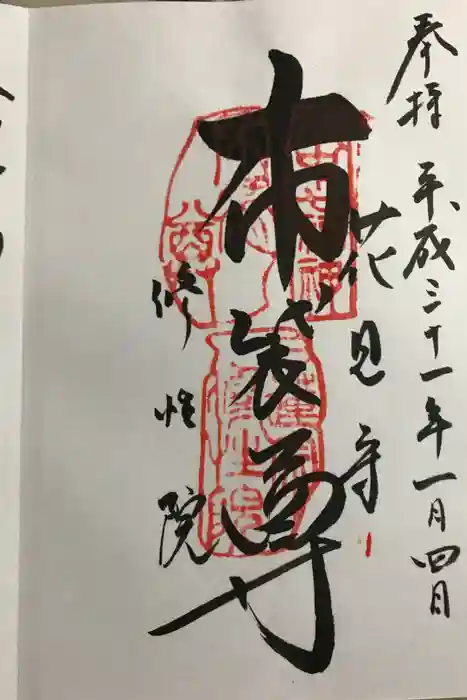 奉拝 平成三十一年一月四日
花見寺
布袋尊
修性院